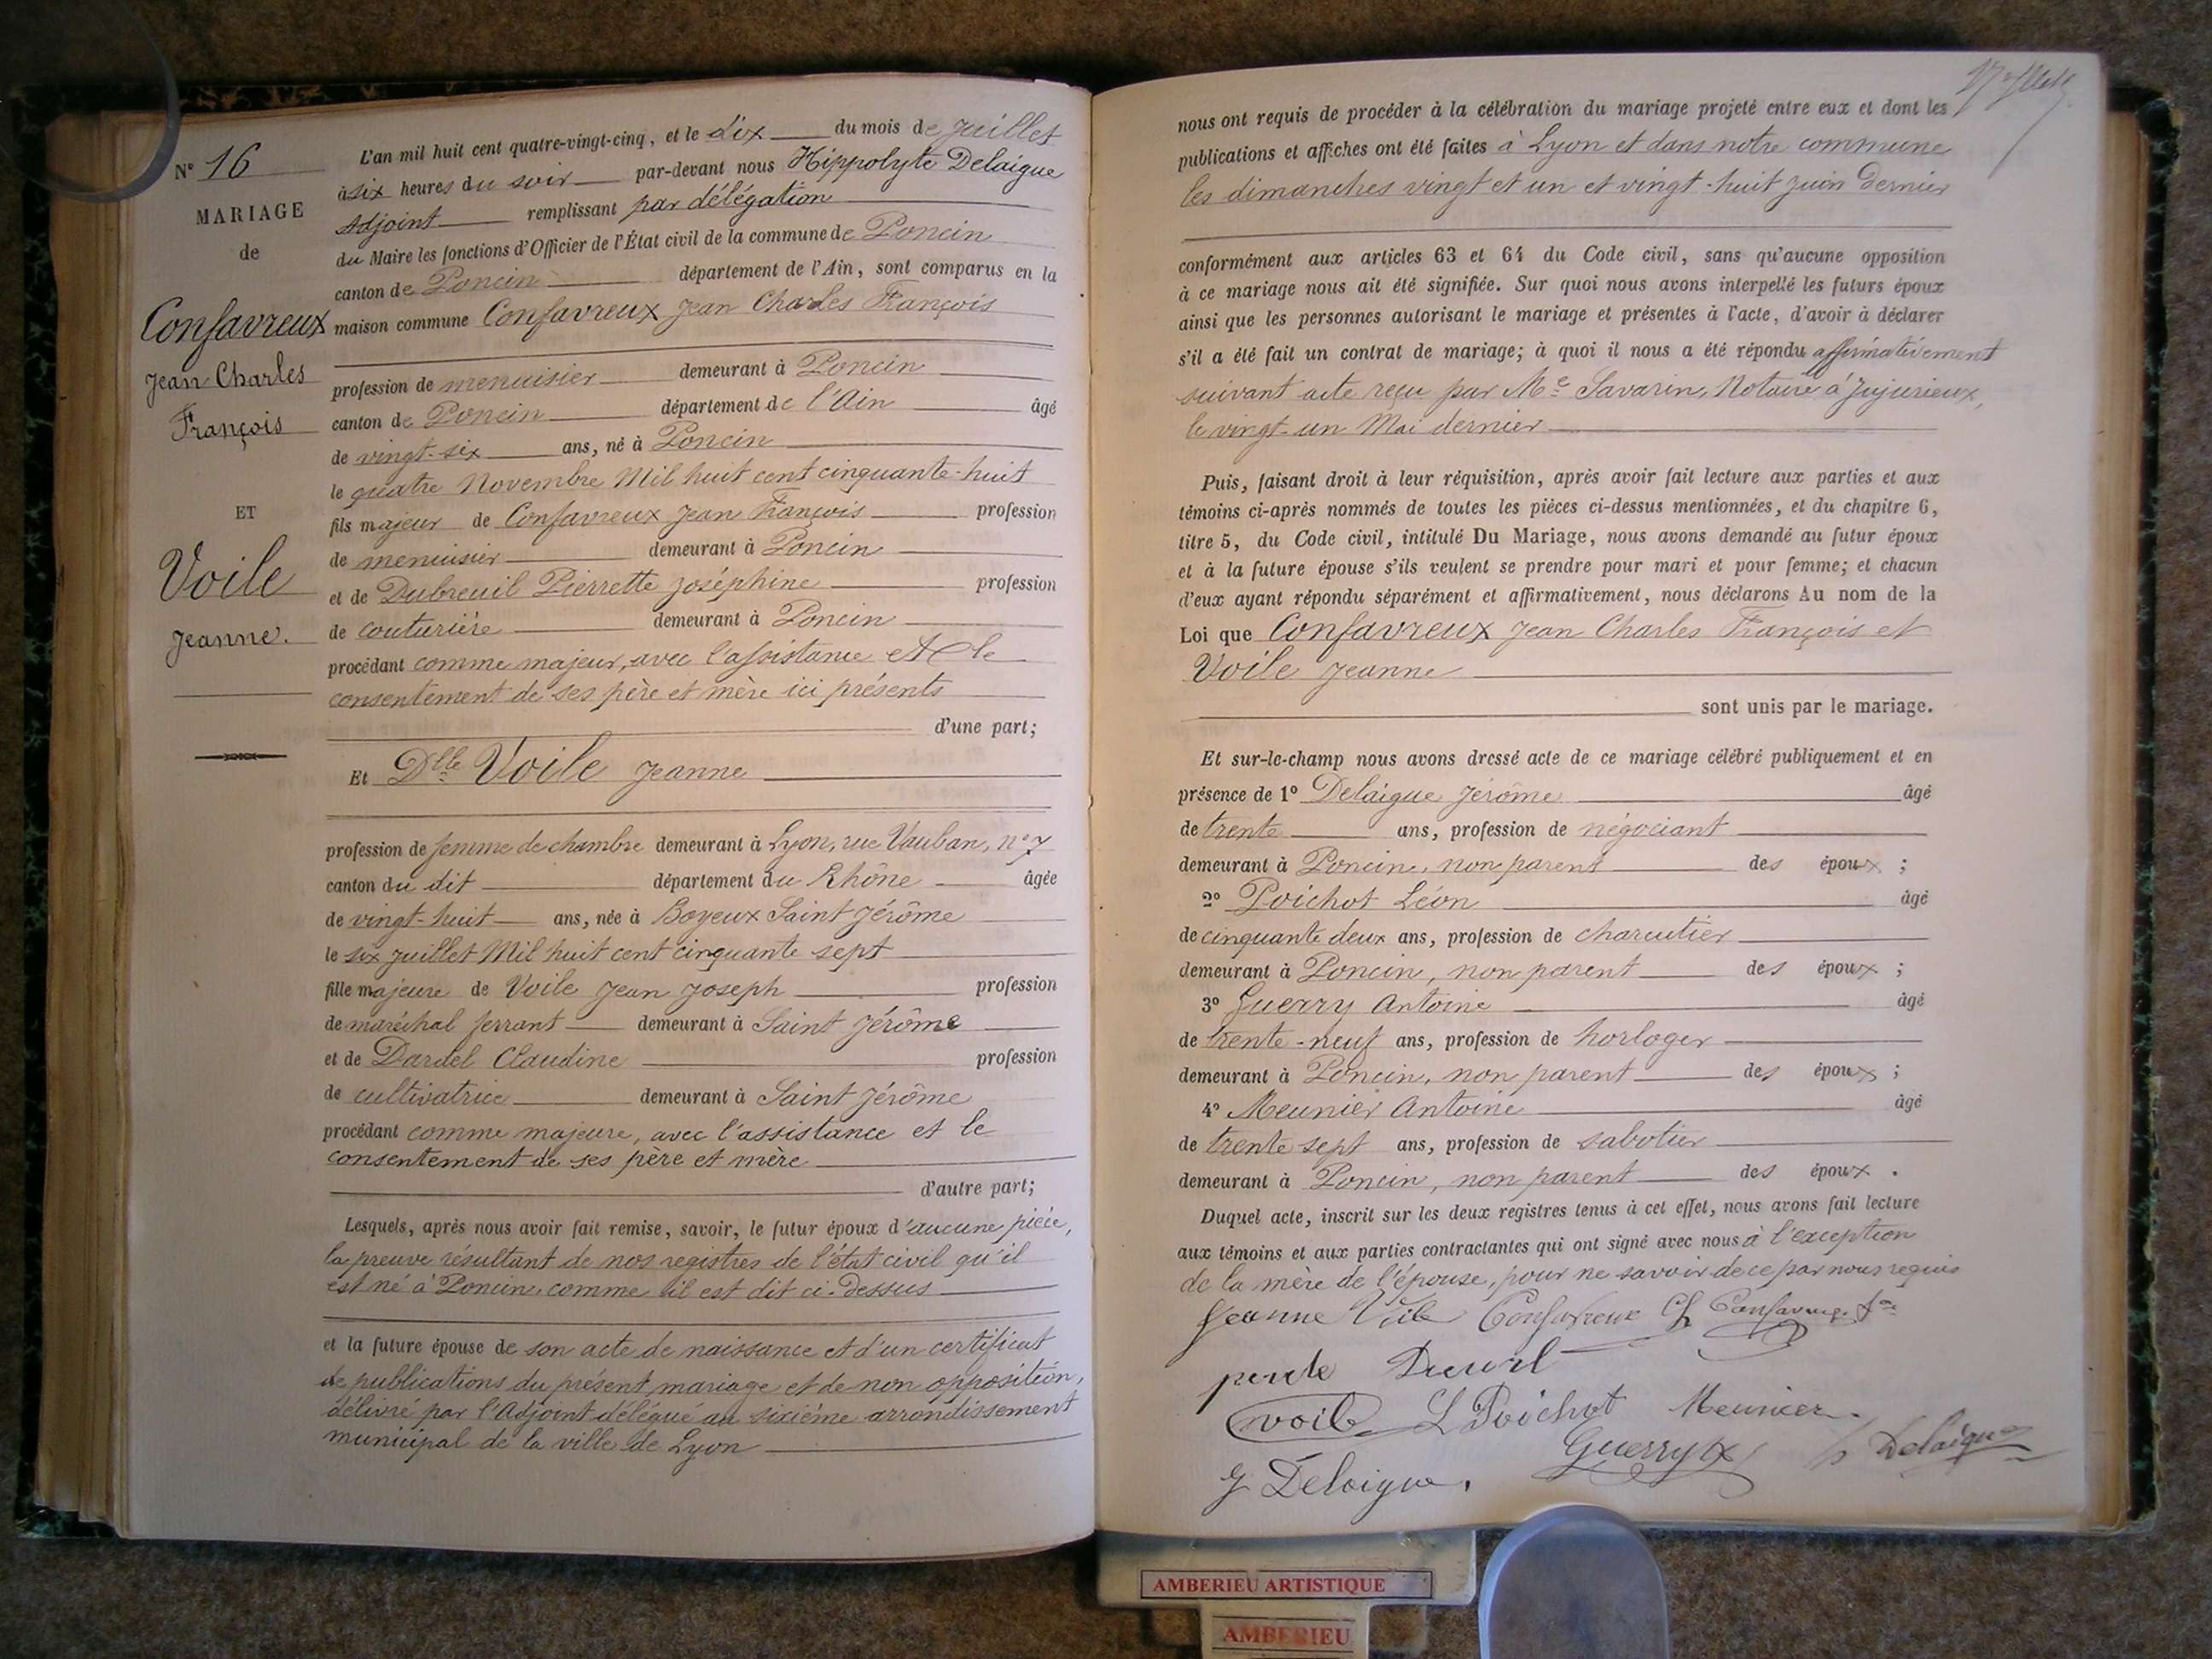 N° 16
MARIAGE
de
Confavreux
Jean Charles
François
ET
Voile
Jeanne.
L'an mil huit cent quatre-vingt-cinq, et le dix du mois de juillet
à six heures du soir par-devant nous Hippolyte Delaigue
Adjoint remplissant par délégation
du Maire les fonctions d'Officier de l'État civil de la commune de Poncin
canton de Poncin département de l'Ain, sont comparus en la
maison commune Confavreux Jean Charles François
profession de menuisier demeurant à Poncin
canton de Poncin département de l'Ain âgé
de vingt-six ans, né à Poncin
le quatre Novembre Mil huit cent cinquante-huit
fils majeur de Confavreux Jean François profession
de menuisier demeurant à Poncin
et de Dubreuil Pierrette Joséphine profession
de couturière demeurant à Poncin
procédant comme majeur, avec l'assistance et le
consentement de ses père et mère ici présents
d'une part;
Et Dlle Voile Jeanne
profession de femme de chambre demeurant à Lyon, rue Vauban, n° 7
canton du dit département du Rhône âgée
de vingt-huit ans, née à Boyeux Saint Jérôme
le six juillet Mil huit cent cinquante sept
fille majeure de Voile Jean Joseph profession
de maréchal ferrant demeurant à Saint Jérôme
et de Dardel Claudine profession
de cultivatrice demeurant à Saint Jérôme
procédant comme majeure, avec l'assistance et le
consentement de ses père et mère
d'autre part;
Lesquels, après nous avoir fait remise, savoir, le futur époux d'aucune pièce,
la preuve résultant de nos registres de l'état civil qu'il
est né à Poncin, comme il est dit ci-dessus
et la future épouse de son acte de naissance et d'un certificat
de publications du présent mariage et de non opposition,
délivré par l'Adjoint délégué au sixième arrondissement
municipal de la ville de Lyon
nous ont requis de procéder à la célébration du mariage projeté entre eux et dont les
publications et affiches ont été faites à Lyon et dans notre commune
les dimanches vingt et un et vingt-huit juin dernier
conformément aux articles 63 et 64 du Code civil, sans qu'aucune opposition
à ce mariage nous ait été signifiée. Sur quoi nous avons interpellé les futurs époux
ainsi que les personnes autorisant le mariage et présentes à l'acte, d'avoir à déclarer
s'il a été fait un contrat de mariage; à quoi il nous a été répondu affirmativement
suivant acte reçu par Me Savarin, Notaire à Jujurieux,
le vingt-un Mai dernier
Puis, faisant droit à leur réquisition, après avoir fait lecture aux parties et aux
témoins ci-après nommés de toutes les pièces ci-dessus mentionnées, et du chapitre 6,
titre 5, du Code civil, intitulé Du Mariage, nous avons demandé au futur époux
et à la future épouse s'ils veulent se prendre pour mari et pour femme; et chacun
d'eux ayant répondu séparément et affirmativement, nous déclarons Au nom de la
Loi que Confavreux Jean Charles François et
Voile Jeanne
sont unis par le mariage.
Et sur-le-champ nous avons dressé acte de ce mariage célébré publiquement et en
présence de 1° Delaigue Jérôme âgé
de trente ans, profession de négociant
demeurant à Poncin, non parent des époux ;
2° Poichot Léon âgé
de cinquante deux ans, profession de charcutier
demeurant à Poncin, non parent des époux ;
3° Guerry Antoine âgé
de trente-neuf ans, profession de horloger
demeurant à Poncin, non parent des époux ;
4° Meunier Antoine âgé
de trente sept ans, profession de sabotier
demeurant à Poncin, non parent des époux .
Duquel acte, inscrit sur les deux registres tenus à cet effet, nous avons fait lecture
aux témoins et aux parties contractantes qui ont signé avec nous à l'exception
de la mère de l'épouse, pour ne savoir de ce par nous requis
Jeanne Voile Confavreux Ch Confavreux
voile L Poichot Meunier
Guerry
J Delaigue. h Delaigue
AMBERIEU ARTISTIQUE
AMBERIEU